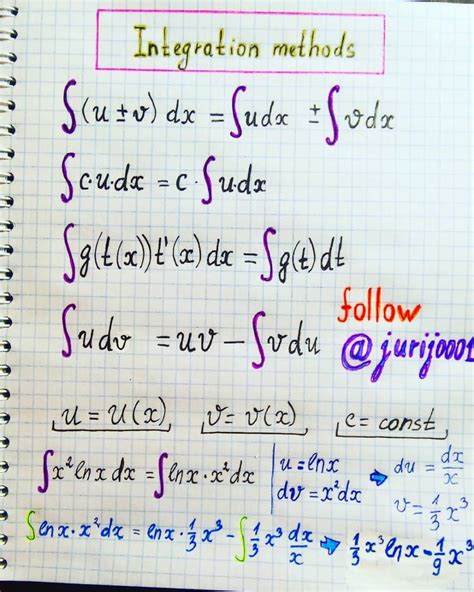 Integration methods
∫(u ± v) dx = ∫udx ± ∫vdx
∫c·u·dx = c·∫u·dx
∫g(t(x))t'(x)dx = ∫g(t)dt
follow
@jurij0001
∫u dv = uv − ∫v du
u = u(x) v = v(x) c = const
∫x² ln x dx = ∫ln x · x² dx | u = ln x dv = x² dx ⇒ du = dx/x v = 1/3 x³
∫ln x · x² dx = ln x · 1/3 x³ − ∫1/3 x³ dx/x ⇒ 1/3 x³ ln x − 1/9 x³